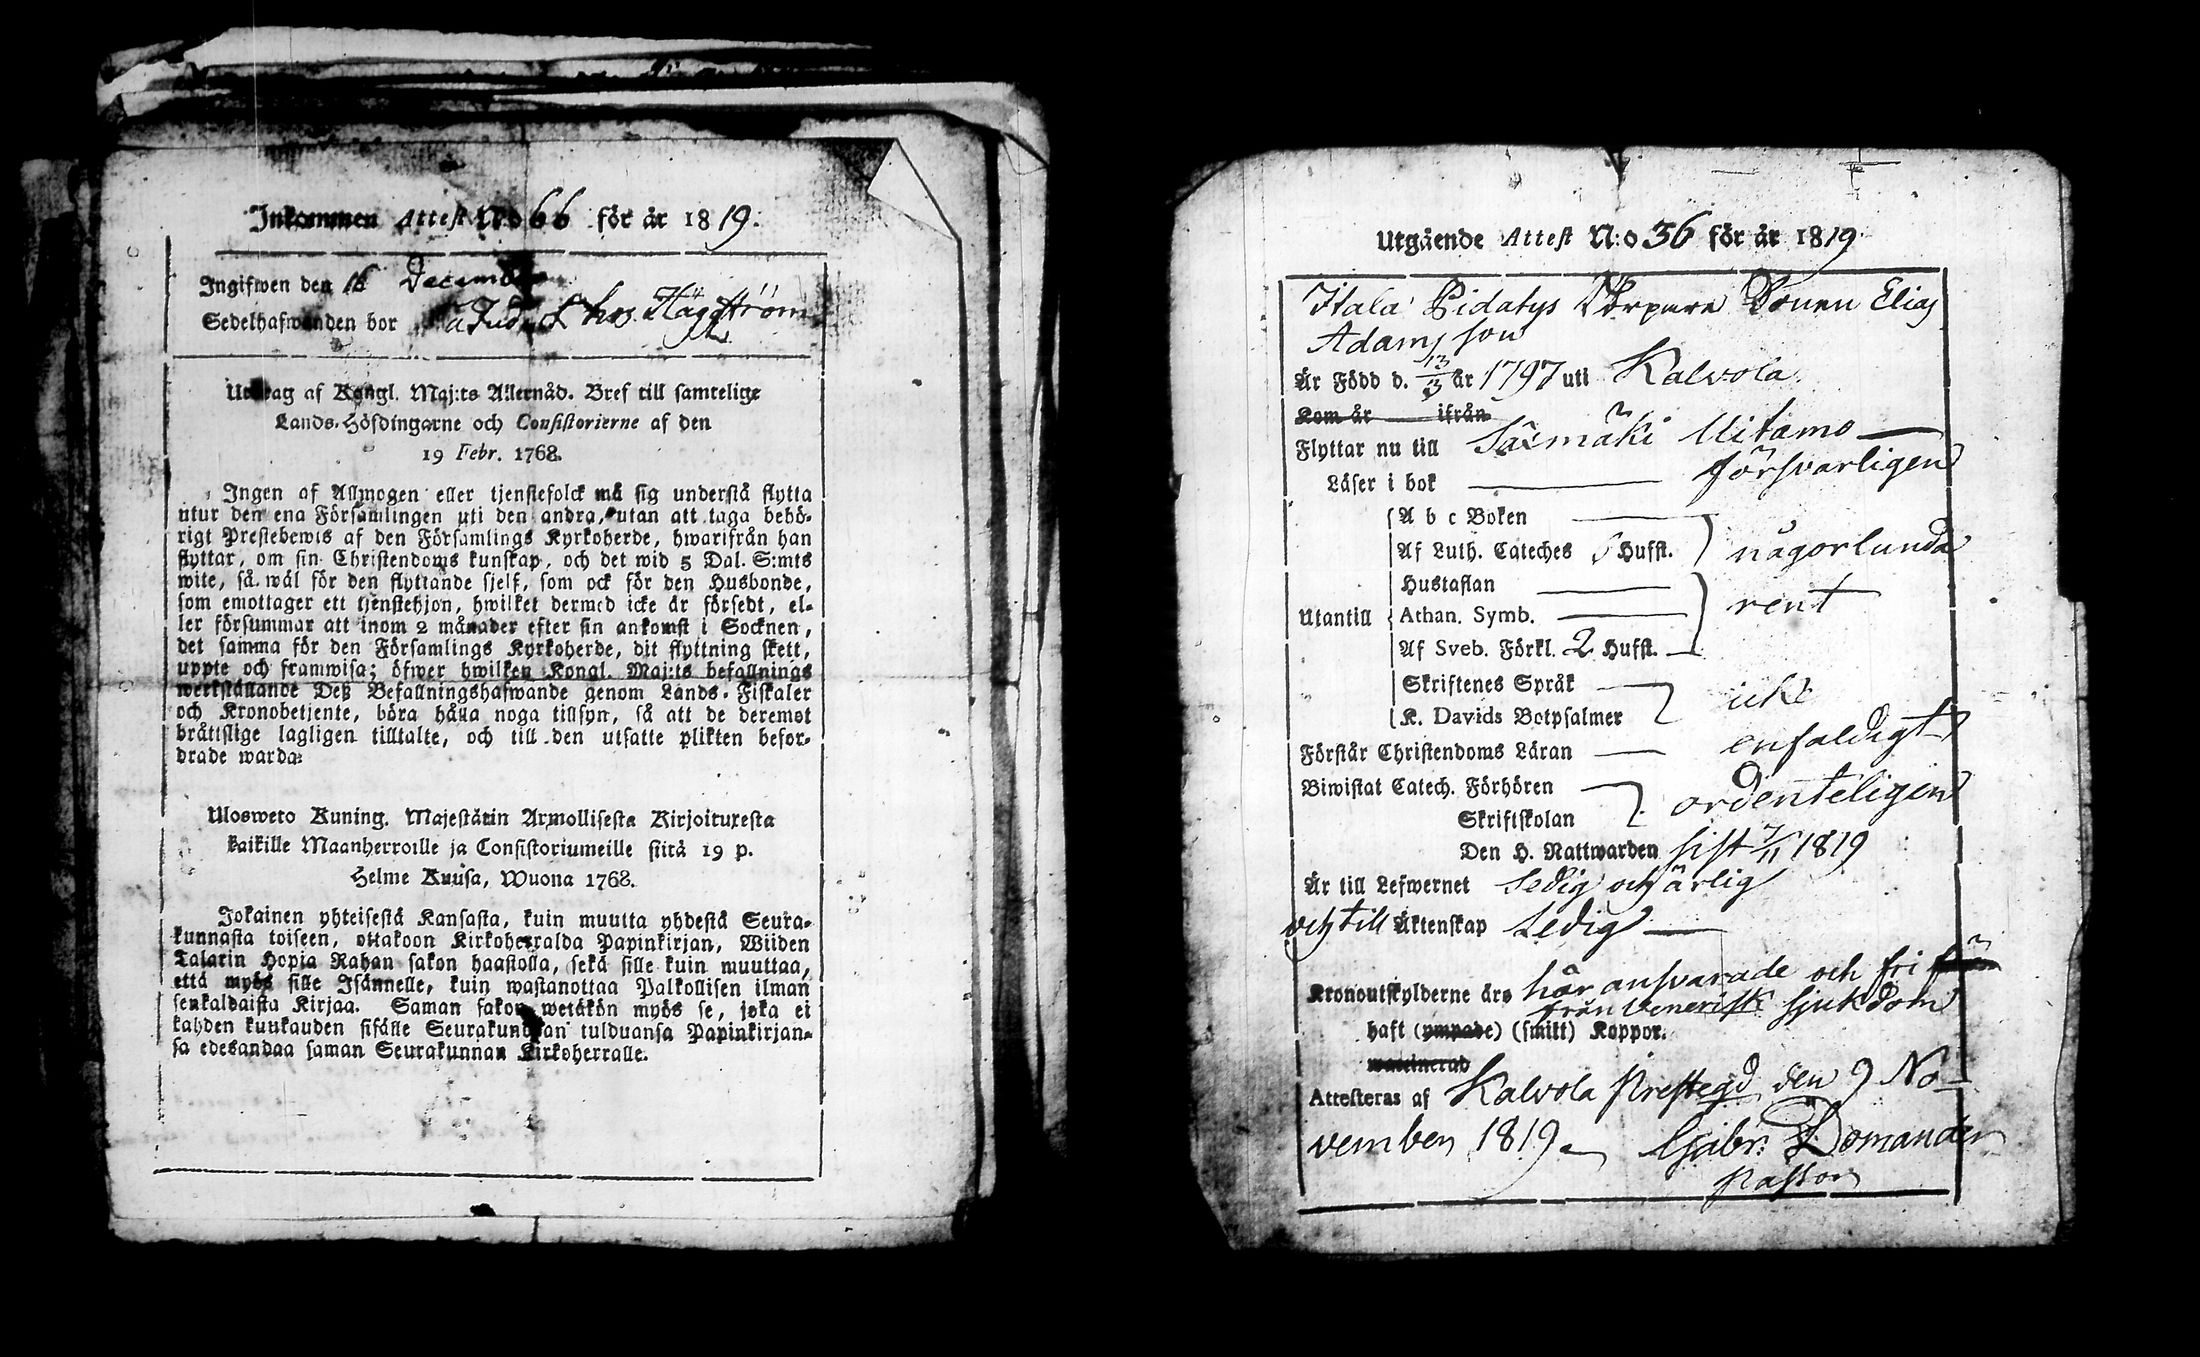 Inkommen Attest N:o 66 för år 1819.
Ingifwen den 16 December
Sedelhafwanden bor Häggström
Utdrag af Kongl. Maj:ts Allernåd. Bref till samtelige
Lands-Höfdingarne och Consistorierne af den
19 Febr. 1768.
Ingen af Allmogen eller tjenstefolck må sig understå flytta
utur den ena Församlingen uti den andra, utan att taga behö-
rigt Prestebewis af den Församlings Kyrkoherde, hwarifrån han
flyttar, om sin Christendoms kunskap, och det wid 5 Dal. S:mts
wite, så wäl för den flyttande sjelf, som ock för den Husbonde,
som emottager ett tjenstehjon, hwilket dermed icke är försedt, el-
ler försummar att inom 2 månader efter sin ankomst i Socknen,
det samma för den Församlings Kyrkoherde, dit flyttning skett,
uppte och framwisa; öfwer hwilken Kongl. Maj:ts befallnings
werkställande Deß Befallningshafwande genom Lands-Fiskaler
och Kronobetjente, böra hålla noga tillsyn, så att de deremot
bråttslige lagligen tilltalte, och till den utsatte plikten befor-
drade warda.
Ulosweto Kuning. Majestätin Armollisesta Kirjoituxesta
kaikille Maanherroille ja Consistoriumeille siitä 19 p.
Helme Kuusa, Wuona 1768.
Jokainen yhteisestä Kansasta, kuin muutta yhdestä Seura-
kunnasta toiseen, ottakoon Kirkoherralda Papinkirjan, Wiiden
Talarin Hopia Rahan sakon haastolla, sekä sille kuin muuttaa,
että myös sille Isännelle, kuin wastanottaa Palkollisen ilman
senkaldaista Kirjaa. Saman sakon wetäkön myös se, joka ei
kahden kuukauden sisälle Seurakundaan tulduansa Papinkirjan-
sa edesandaa saman Seurakunnan Kirkoherralle.
Utgående Attest N:o 36 för år 1819
Itala Elias
Adamsson
Är Född d. 13/3 år 1797 uti Kalvola
Kom år ifrån
Flyttar nu till Säxmäki Uitamo
Läser i bok försvarligen
A b c Boken
Af Luth. Cateches 5 Hufst. någorlunda
Hustaflan
Utantill Athan. Symb. rent
Af Sveb. Förkl. 2 Hufst.
Skriftenes Språk
K. Davids Botpsalmer icke
Förstår Christendoms Läran enfaldigt
Biwistat Catech. Förhören
Skriftskolan ordenteligen
Den H. Nattwarden sist 7/11 1819
Är till Lefwernet sedig och ärlig
och till Äktenskap Ledig
Kronoutskylderne äro här ansvarade och fri
från Venerisk sjukdom
haft (ympade) (smitt) Koppor.
waccinerad
Attesteras af Kalvola Prestegd den 9 No-
vember 1819. Gabr. Domander
Pastor